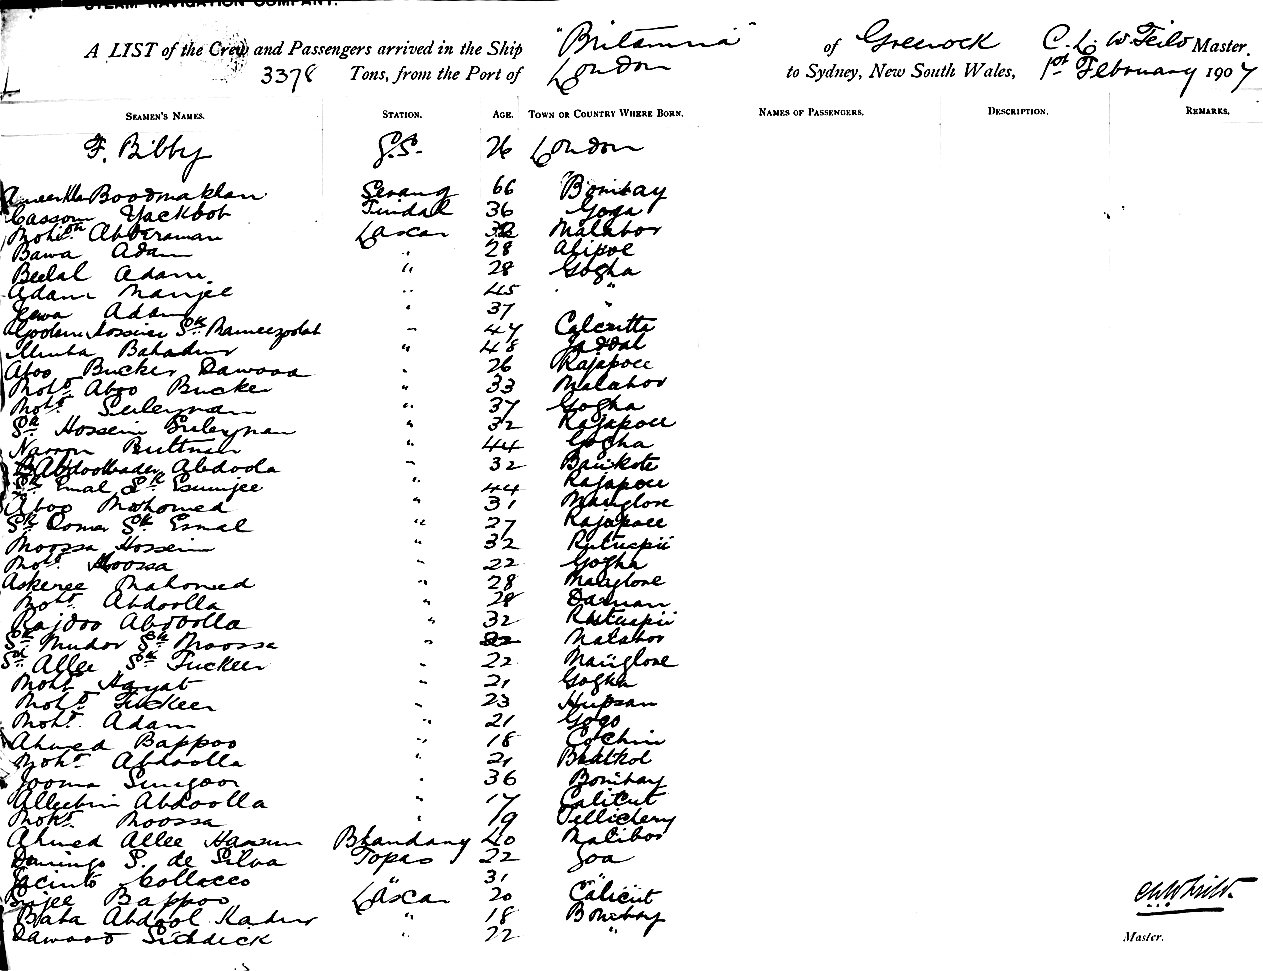 STEAM NAVIGATION COMPANY.
A LIST of the Crew and Passengers arrived in the Ship "Britannia" of Greenock C. L. W. Master.
3378 Tons, from the Port of London to Sydney, New South Wales, 1st February 1907
SEAMEN'S NAMES. STATION. AGE. TOWN OR COUNTRY WHERE BORN. NAMES OF PASSENGERS. DESCRIPTION. REMARKS.
F. Bibby G.S. 26 London
Serang 66 Bombay
Cassom Yackoob Tindal 36 Goga
Lascar Malabor
Bawa Adam " 28
Belal Adam " 28 Gogha
Adam Manjee " 45 "
Jewa Adam " 37 "
" 47 Calcutta
Bahadur " 48
Aboo Bucker Dawood " 26 Rajapoee
Moht. Aboo Bucker " 33 Malabor
Moht. Suleyman " 37 Gogha
Sk. Hossein Suleyman " 32 Rajapoee
" 44 Gogha
Abdoola " 32 Bankote
Sk. Esmal Sk. " 44 Rajapoee
Aboo Mohomed " 31 Manglore
Sk. Ooma Sk. Esmal " 27 Rajapoee
Moossa Hossein " 32
Moht. Moossa " 22 Gogha
Askeree Mahomed " 28 Manglore
Moht. Abdoolla " 28 Daman
Rajdoo Abdoolla " 32
Sk. Mudor Sk. Moossa " Malabor
Sk. Allee Sk. Fuckeer " 22 Manglore
Moht. Hayat " 21 Gogha
Moht. Fuckeer " 23
Moht. Adam " 21 Gogo
Ahmed Bappoo " 18 Cochin
Moht. Abdoolla " 21
Jooma " 36 Bombay
Abdoolla " 17 Calicut
Moht. Moossa " 19 Tellichery
Ahmed Allee Hassun Bhandary 40 Malibor
Domingo S. de Silva Topas 22 Goa
Jacinto Collacco " 31 "
Bappoo Lascar 20 Calicut
Baba Abdool Kadur " 18 Bombay
Dawood Siddick " 22 "
Master.